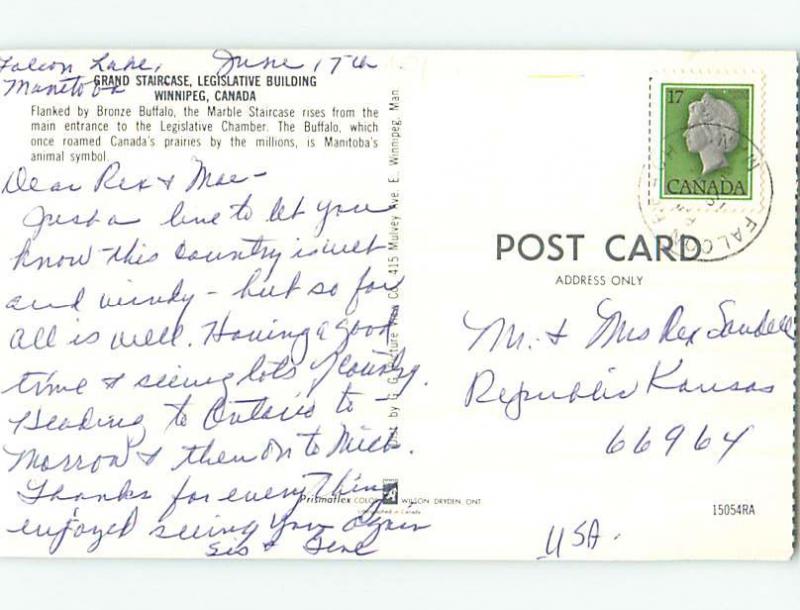 Falcon Lake, June 17th
Manitoba
GRAND STAIRCASE, LEGISLATIVE BUILDING
WINNIPEG, CANADA
Flanked by Bronze Buffalo, the Marble Staircase rises from the
main entrance to the Legislative Chamber. The Buffalo, which
once roamed Canada's prairies by the millions, is Manitoba's
animal symbol.
Dear Rex & Mae -
Just a line to let you
know this country is wet
and windy - but so far
all is well. Having a good
time & seeing lots of country.
Heading to Ontario to -
morrow & then on to Mich.
Thanks for everything
enjoyed seeing you again
Sis & Gene
415 Mulvey Ave. E., Winnipeg, Man.
Prismaflex COLOR WILSON DRYDEN, ONT
Lithographed in Canada
17
CANADA
FALCON
POST CARD
ADDRESS ONLY
Mr. & Mrs Rex
Republic Kansas
66964
USA.
15054RA